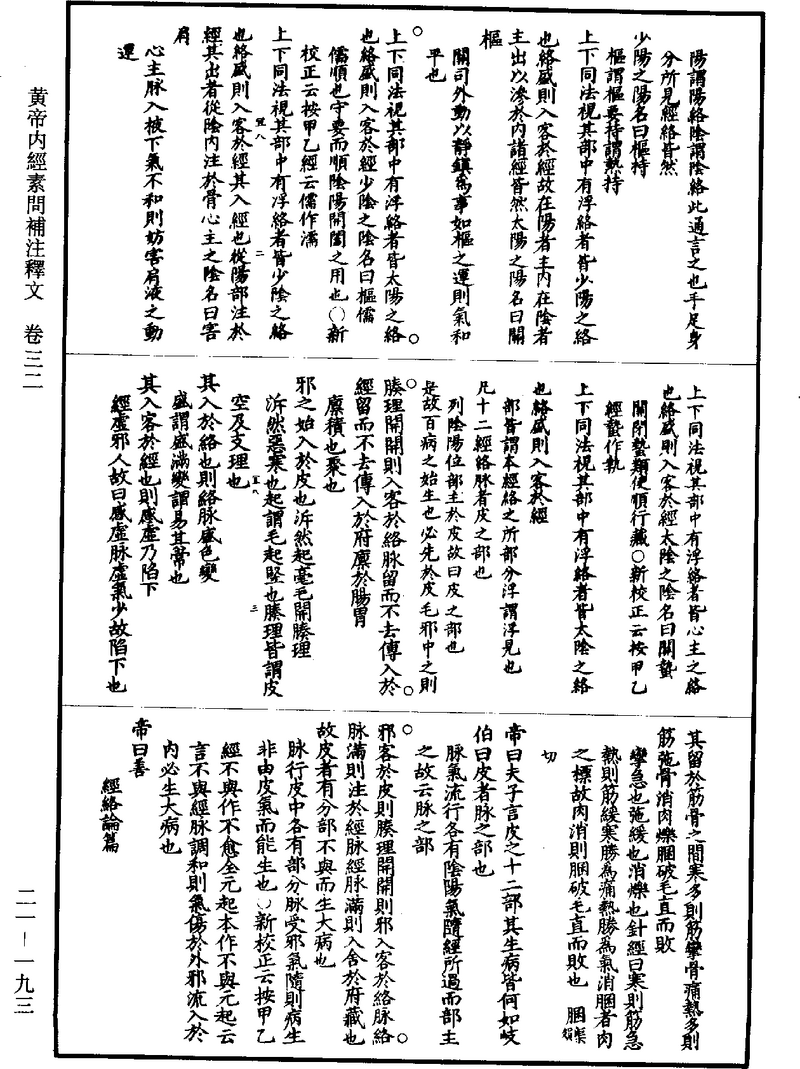 陽謂陽絡陰謂陰絡此通言之也手足身
分所見經絡皆然
少陽之陽名曰樞持
樞謂樞要持謂執持
上下同法視其部中有浮絡者皆少陽之絡
也絡盛則入客於經故在陽者主內在陰者
主出以滲於內諸經皆然太陽之陽名曰關
樞
關司外動以靜鎮為事如樞之運則氣和
平也
上下同法視其部中有浮絡者皆太陽之絡
也絡盛則入客於經少陰之陰名曰樞儒
儒順也守要而順陰陽開闔之用也○新
校正云按甲乙經云儒作濡
上下同法視其部中有浮絡者皆少陰之絡
也絡盛則入客於經其入經也從陽部注於
經其出者從陰內注於骨心主之陰名曰害
肩
心主脉入掖下氣不和則妨害肩液之動
運
上下同法視其部中有浮絡者皆心主之絡
也絡盛則入客於經太陰之陰名曰關蟄
關閉蟄類使順行藏○新校正云按甲乙
經蟄作執
上下同法視其部中有浮絡者皆太陰之絡
也絡盛則入客於經
部皆謂本經絡之所部分浮謂浮見也
凡十二經絡脉者皮之部也
列陰陽位部主於皮故曰皮之部也
是故百病之始生也必先於皮毛邪中之則
腠理開開則入客於絡脉留而不去傳入於
經留而不去傳入於府廩於腸胃
廩積也聚也
邪之始入於皮也泝然起毫毛開腠理
泝然惡寒也起謂毛起堅也腠理皆謂皮
空及支理也
其入於絡也則絡脉盛色變
盛謂盛滿變謂易其常也
其入客於經也則感虛乃陷下
經虛邪人故曰感虛脉虛氣少故陷下也
其留於筋骨之間寒多則筋攣骨痛熱多則
筋㢮骨消肉爍䐃破毛直而敗
攣急也㢮緩也消爍也針經曰寒則筋急
熱則筋緩寒勝為痛熱勝為氣消䐃者肉
之標故肉消則䐃破毛直而敗也 䐃
切
帝曰夫子言皮之十二部其生病皆何如岐
伯曰皮者脉之部也
脉氣流行各有陰陽氣隨經所過而部主
之故云脉之部
邪客於皮則腠理開開則邪入客於絡脉絡
脉滿則注於經脉經脉滿則入舍於府藏也
故皮者有分部不與而生大病也
脉行皮中各有部分脉受邪氣隨則病生
非由皮氣而能生也○新校正云按甲乙
經不與作不愈全元起本作不與元起云
言不與經脉調和則氣傷於外邪流入於
內必生大病也
帝曰善
經絡論篇
黃帝內經素問補注釋文 卷三二
二一—一九三